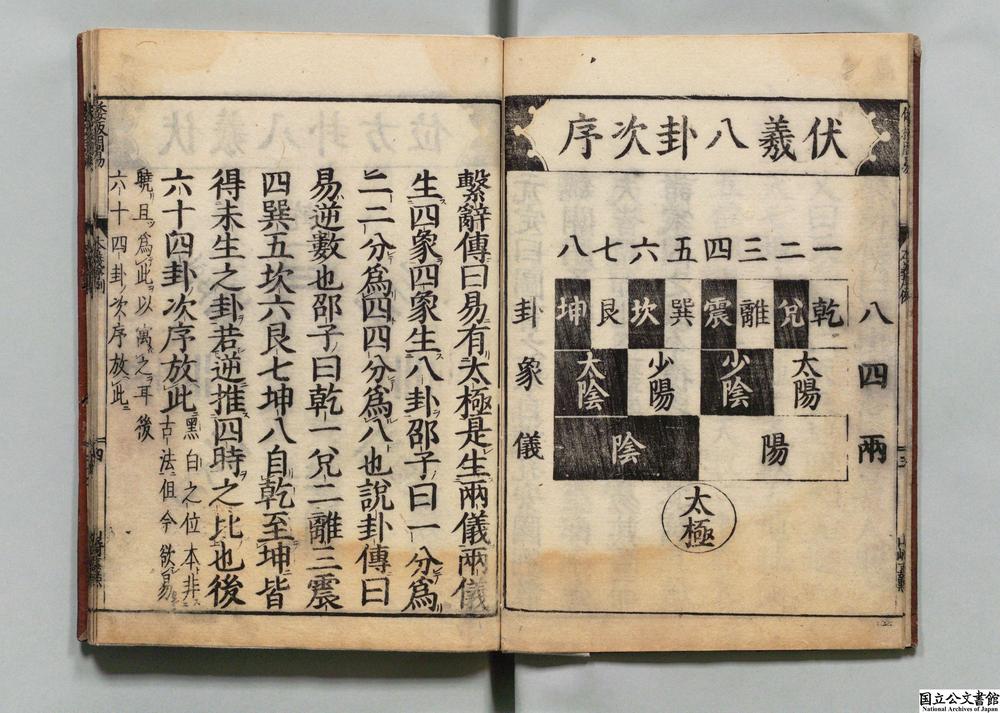 伏羲八卦次序
一二三四五六七八
八四兩
乾兌離震巽坎艮坤
卦
太陽少陰少陽太陰
象
陽陰
儀
太極
繫辭傳曰易有太極是生兩儀兩儀
生四象四象生八卦邵子曰一分爲
二二分爲四四分爲八也說卦傳曰
易逆數也邵子曰乾一兌二離三震
四巽五坎六艮七坤八自乾至坤皆
得未生之卦若逆推四時之比也後
六十四卦次序放此黑白之位本非
古法但今欲易
曉且爲此以寓之耳後
六十四卦次序放此
四
国立公文書館
National Archives of Japan